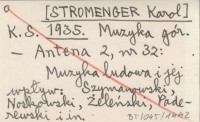 a [STROMENGER Karol]
K. S. 1935. Muzyka gór.
— Antena 2, nr 32:
Muzyka ludowa i jej
wpływ: Szymanowski,
Noskowski, Żeleński, Pade-
rewski i in.